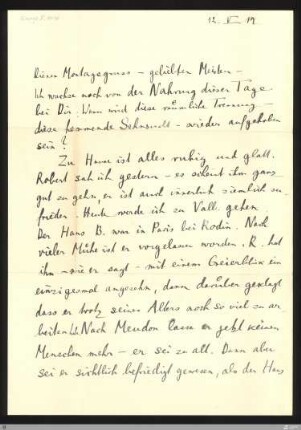 12. V 19
diesen Montagsgruss – geliebter Meister –
Ich wachse noch von der Nahrung dieser Tage
bei Dir. Wann wird diese räumliche Trennung –
diese brennende Sehnsucht – wieder aufgehoben
sein?
Zu Hause ist alles ruhig und glatt.
Robert sah ich gestern – es scheint ihm ganz
gut zu gehn, er ist auch innerlich ziemlich zu-
frieden. Heute werde ich zu Vall. gehen
Der Hans B. war in Paris bei Rodin. Nach
vieler Mühe ist er vorgelassen worden. R. hat
ihn – wie er sagt – mit einem Geierblick ein
einzigesmal angesehn, dann darüber geklagt
dass er trotz seines Alters noch so viel zu ar-
beiten hat. Nach Meudon lasse er jetzt keinen
Menschen mehr – er sei zu alt. Dann aber
sei er sichtlich befriedigt gewesen, als der Hans